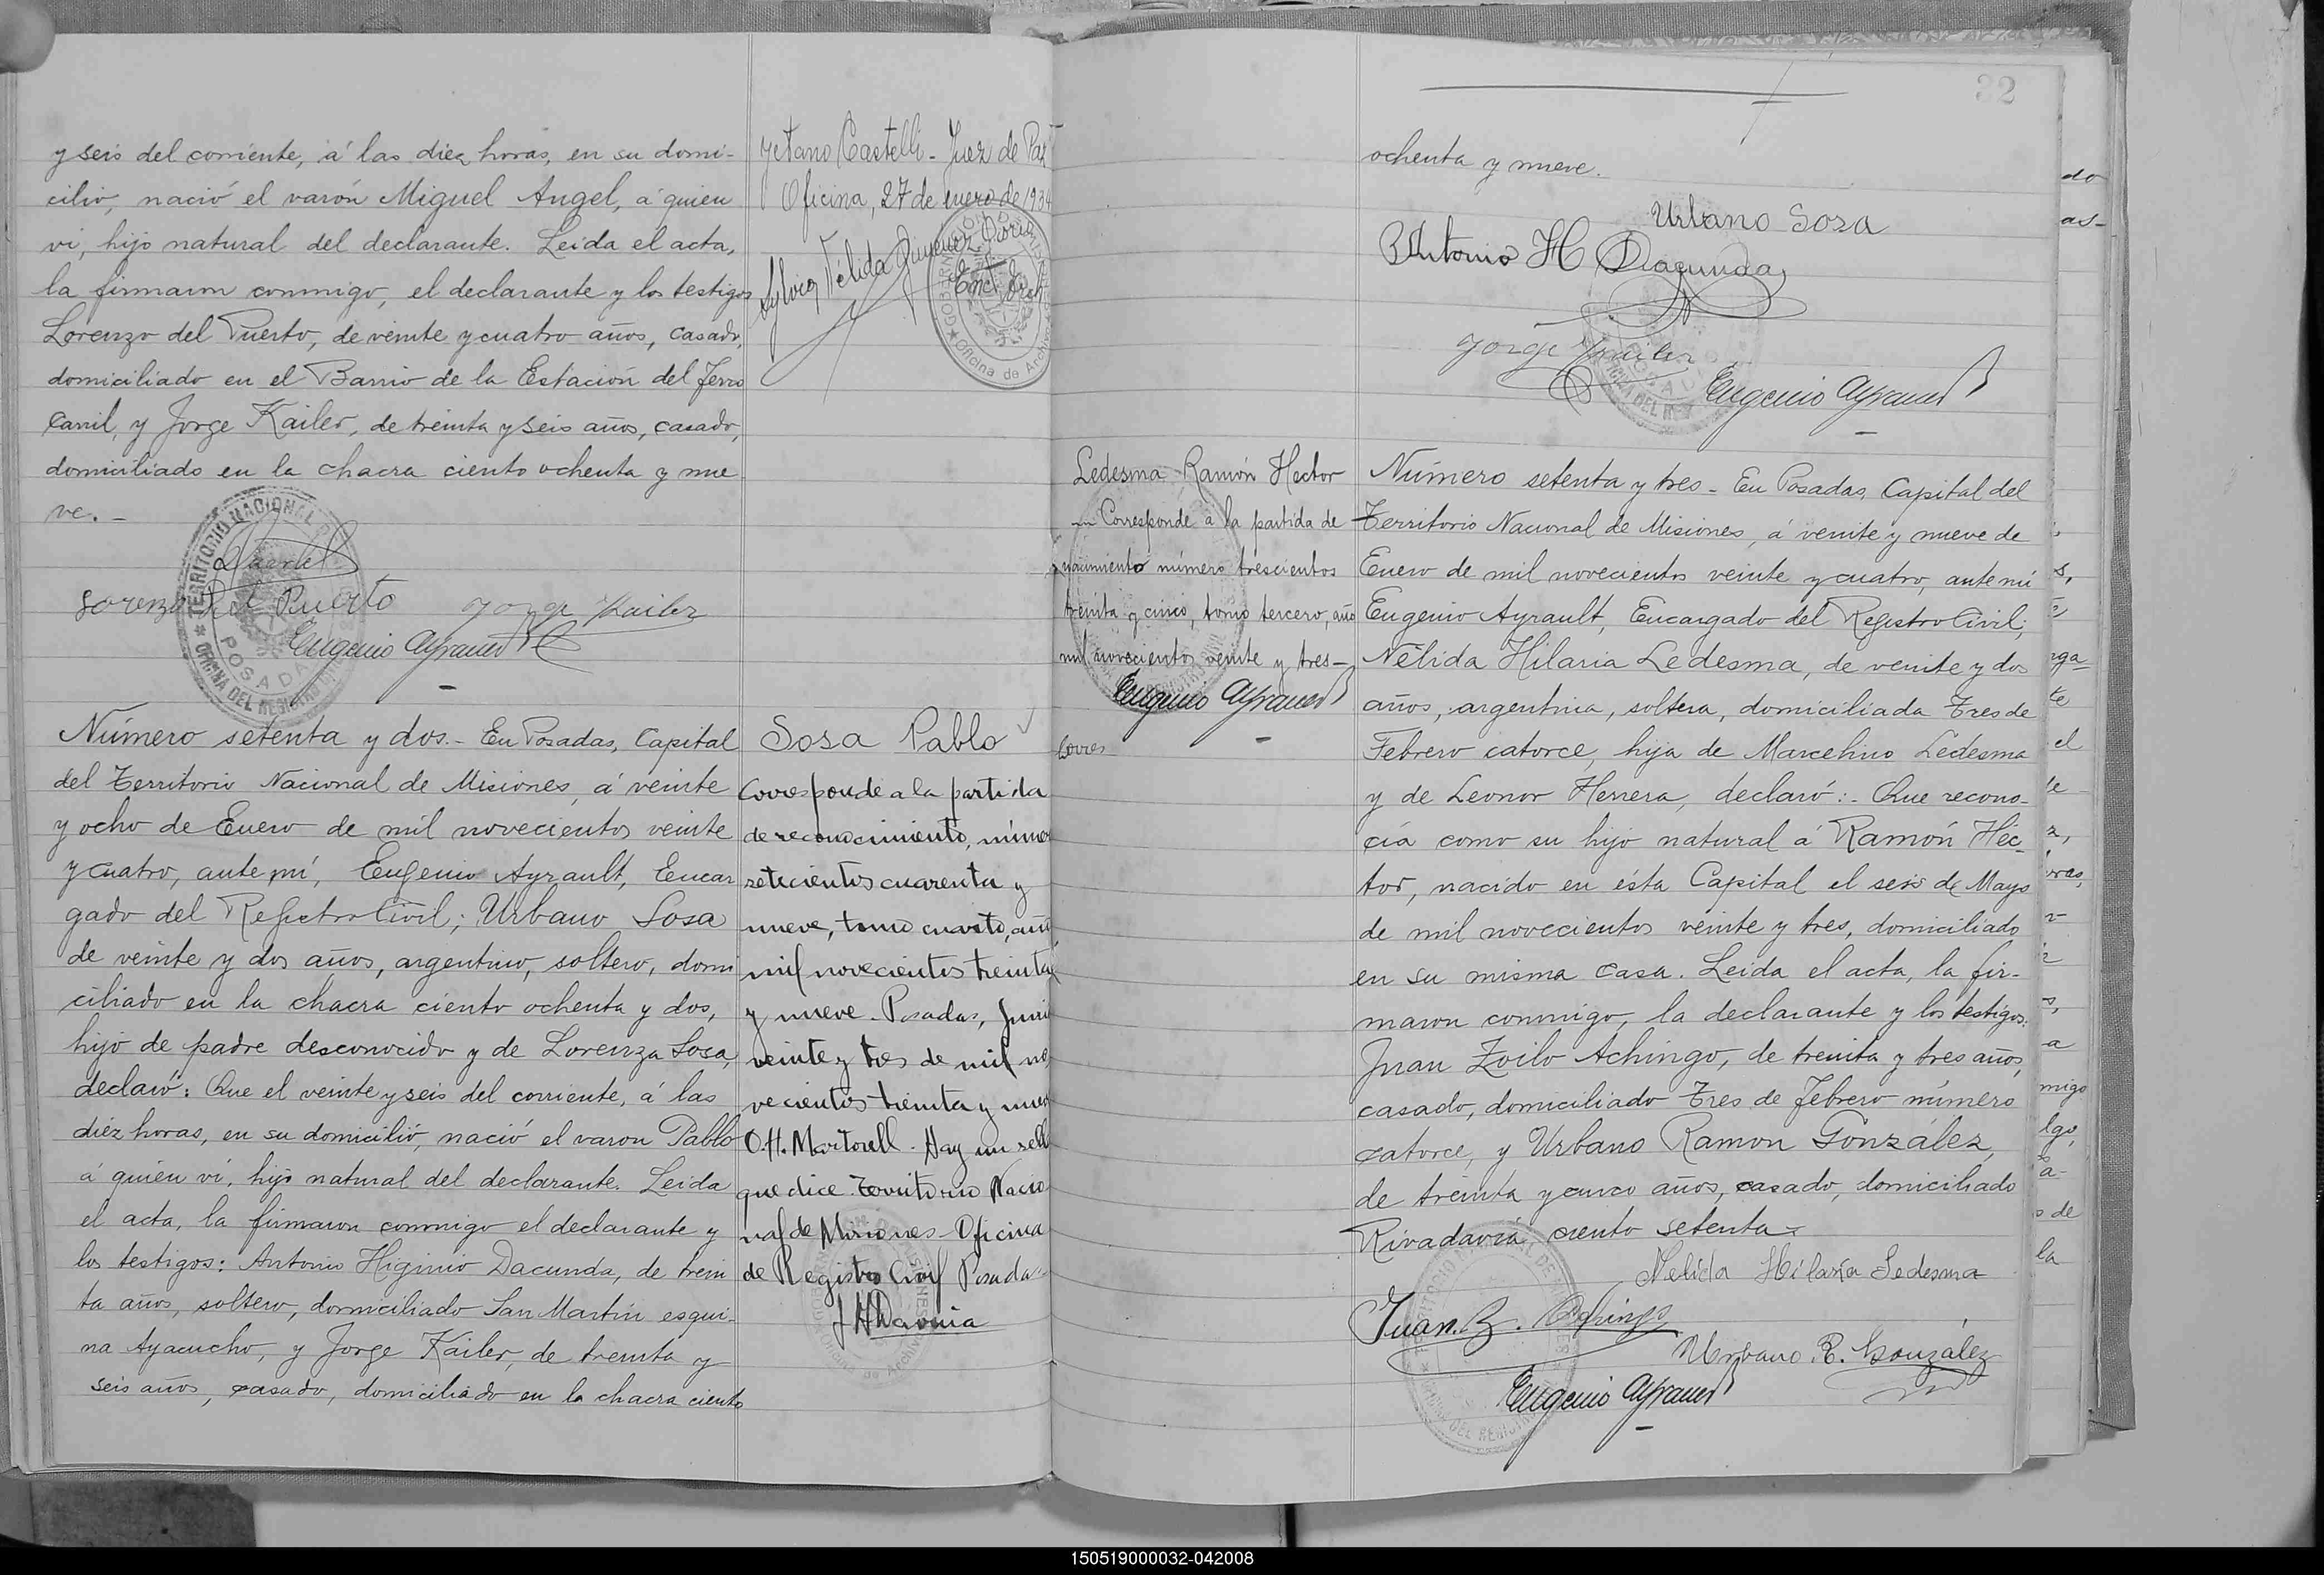 y seis del corriente, á las diez horas, en su domi-
cilio, nació el varón Miguel Angel, á quien
vi, hijo natural del declarante. Leida el acta,
la firmaron conmigo, el declarante y los testigos
Lorenzo del Puerto, de veinte y cuatro años, casado,
domiciliado en el Barrio de la Estación del Ferro
carril, y Jorge Kailer, de treinta y seis años, casado,
domiciliado en la chacra ciento ochenta y nue
ve. -
Lorenzo del Puerto Jorge Kailer
Eugenio Ayrault
TERRITORIO NACIONAL
POSADAS
OFICINA DEL REGISTRO
yetano Castelli - Juez de Paz
Oficina, 27 de enero de 1934
Oficina de Archivo
Número setenta y dos.- En Posadas, Capital
del Territorio Nacional de Misiones, á veinte
y ocho de Enero de mil novecientos veinte
y cuatro, ante mí, Eugenio Ayrault, Encar
gado del Registro Civil; Urbano Sosa
de veinte y dos años, argentino, soltero, domi
ciliado en la chacra ciento ochenta y dos,
hijo de padre desconocido y de Lorenza Sosa,
declaró: Que el veinte y seis del corriente, á las
diéz horas, en su domicilió, nació el varon Pablo
á quien vi, hijo natural del declarante. Leida
el acta, la firmaron conmigo el declarante y
los testigos: Antonio Higinio Dacunda, de trein
ta años, soltero, domiciliado San Martín esqui-
na Ayacucho, y Jorge Kailer, de treinta y
seis años, casado, domiciliado en la chacra ciento
Sosa Pablo
Corresponde a la partida
de reconocimiento, número
setecientos cuarenta y
nueve, tomo cuarto, año
mil novecientos treinta
y nueve. Posadas, Junio
veinte y tres de mil no
vecientos treinta y nueve
O.H. Martorell. Hay un sello
que dice. Territorio Nacio
nal de Misiones - Oficina
de Registro Civil Posadas
32
ochenta y nueve.
Urbano Sosa
Antonio H Dacunda
Jorge Kailer
Eugenio Ayrault
Ledesma Ramón Hector
Corresponde a la partida de
nacimiento número trescientos
treinta y cinco, tomo tercero, año
mil novecientos veinte y tres -
Eugenio Ayrault
Corres
Número setenta y tres - En Posadas, Capital del
Territorio Nacional de Misiones, á veinte y nueve de
Enero de mil novecientos veinte y cuatro, ante mí
Eugenio Ayrault, Encargado del Registro Civil;
Nélida Hilaria Ledesma, de veinte y dos
años, argentina, soltera, domiciliada Tres de
Febrero catorce, hija de Marcelino Ledesma
y de Leonor Herrera, declaró:- Que recono-
cía como su hijo natural á Ramón Héc-
tor, nacido en ésta Capital el seis de Mayo
de mil novecientos veinte y tres, domiciliado
en su misma casa. Leida el acta, la fir-
maron conmigo, la declarante y los testigos:
Juan Zoilo Achingo, de treinta y tres años,
casado, domiciliado Tres de Febrero número
catorce, y Urbano Ramon González,
de treinta y cinco años, casado, domiciliado
Rivadavia ciento setenta -
Nelida Hilaria Ledesma
Juan. Z. Achingo
Urbano. R. González
Eugenio Ayrault
150519000032-042008